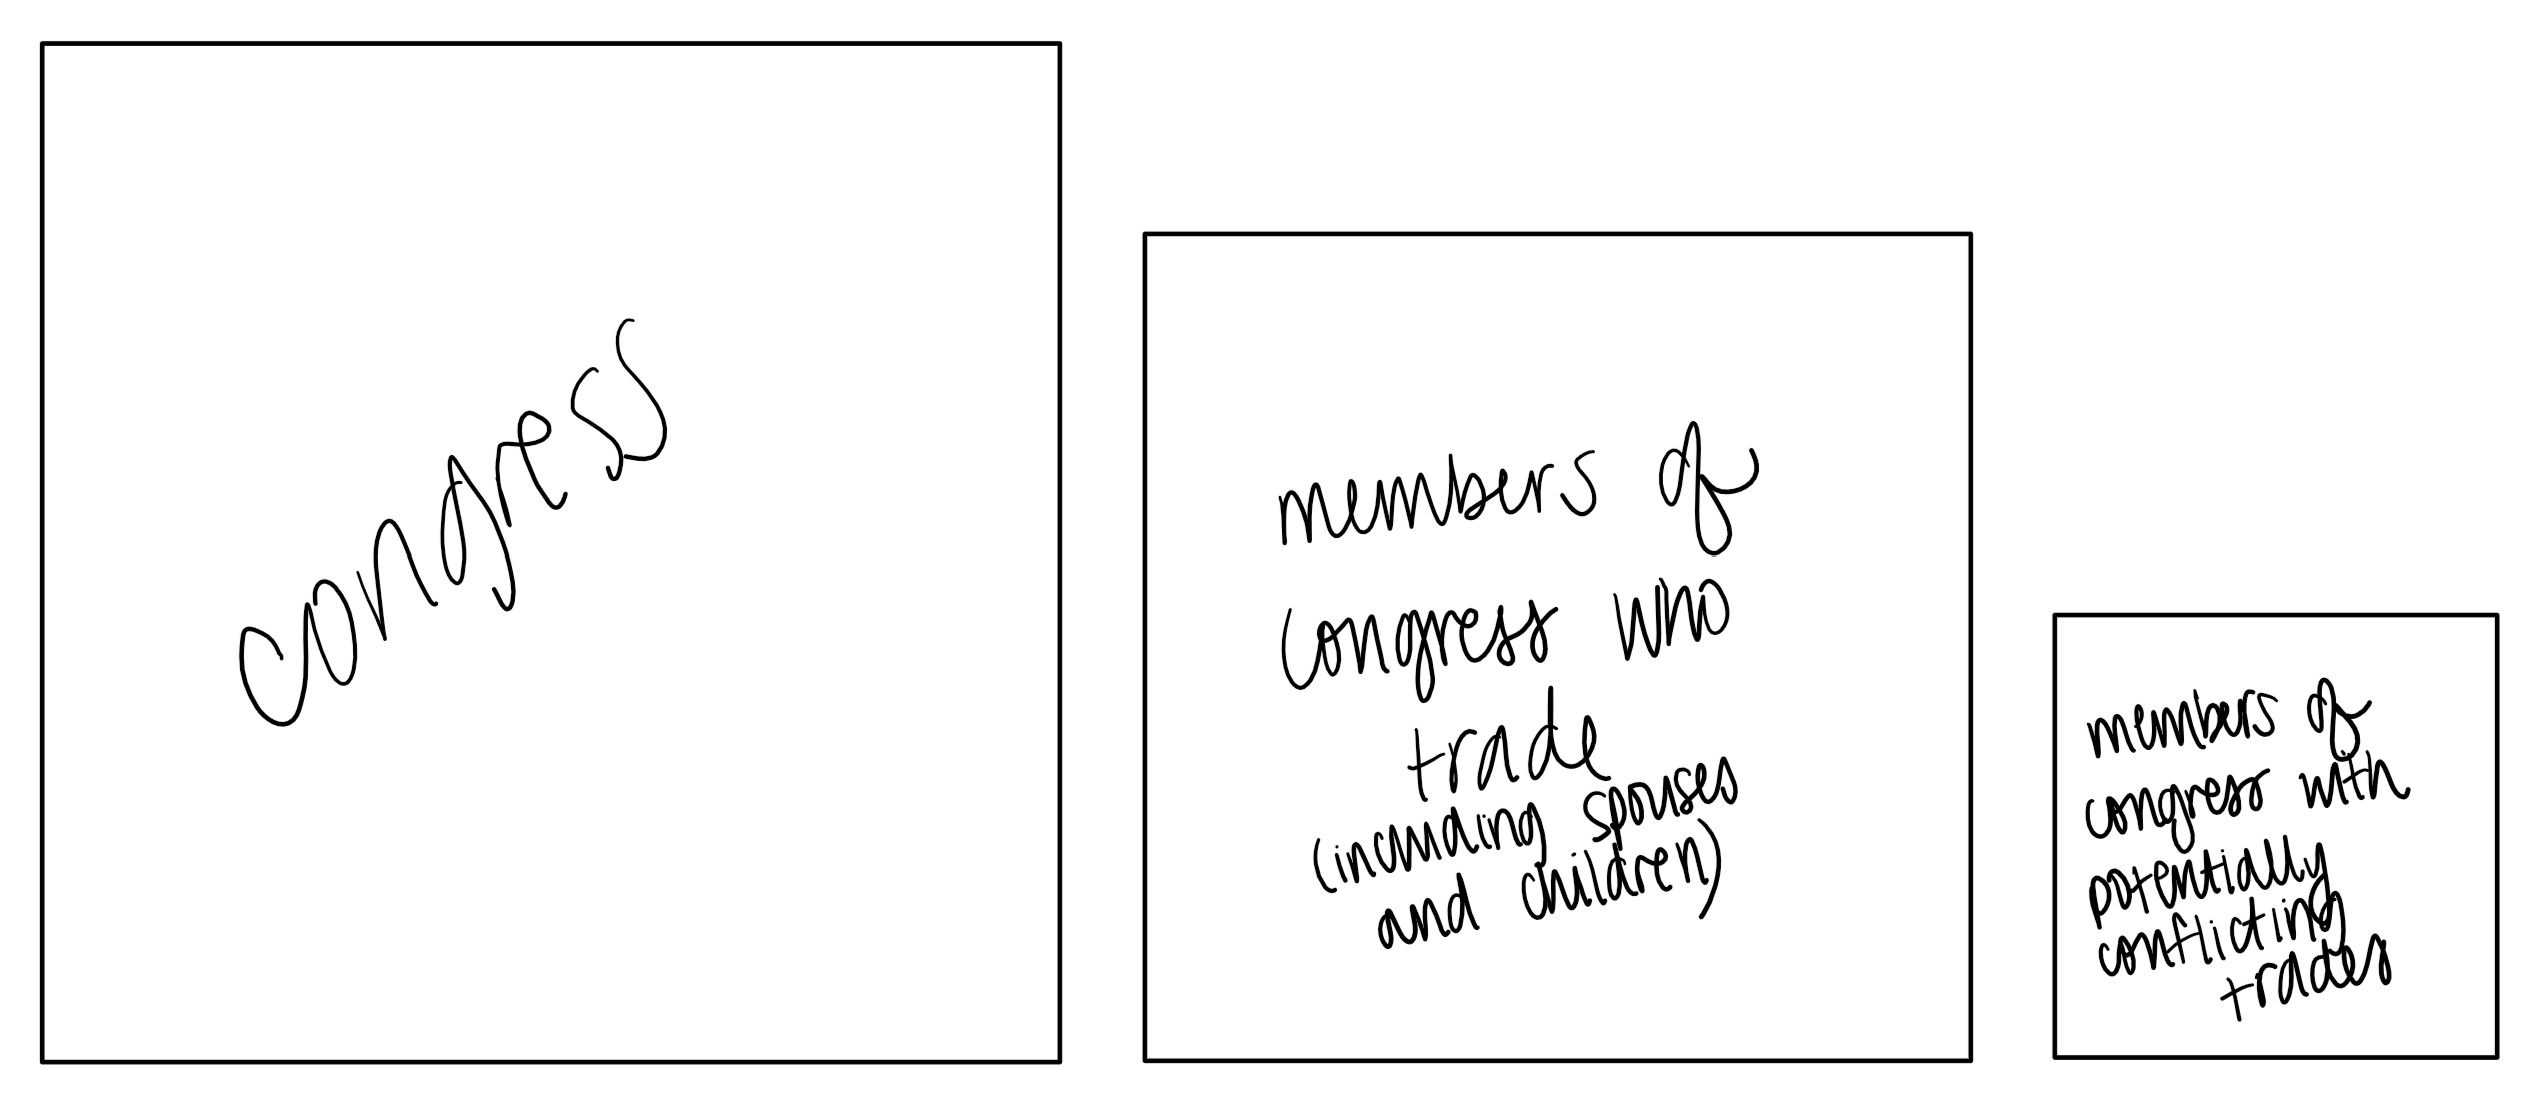 congress
members of
congress who
trade
(including spouses
and children)
members of
congress with
potentially
conflicting
trades